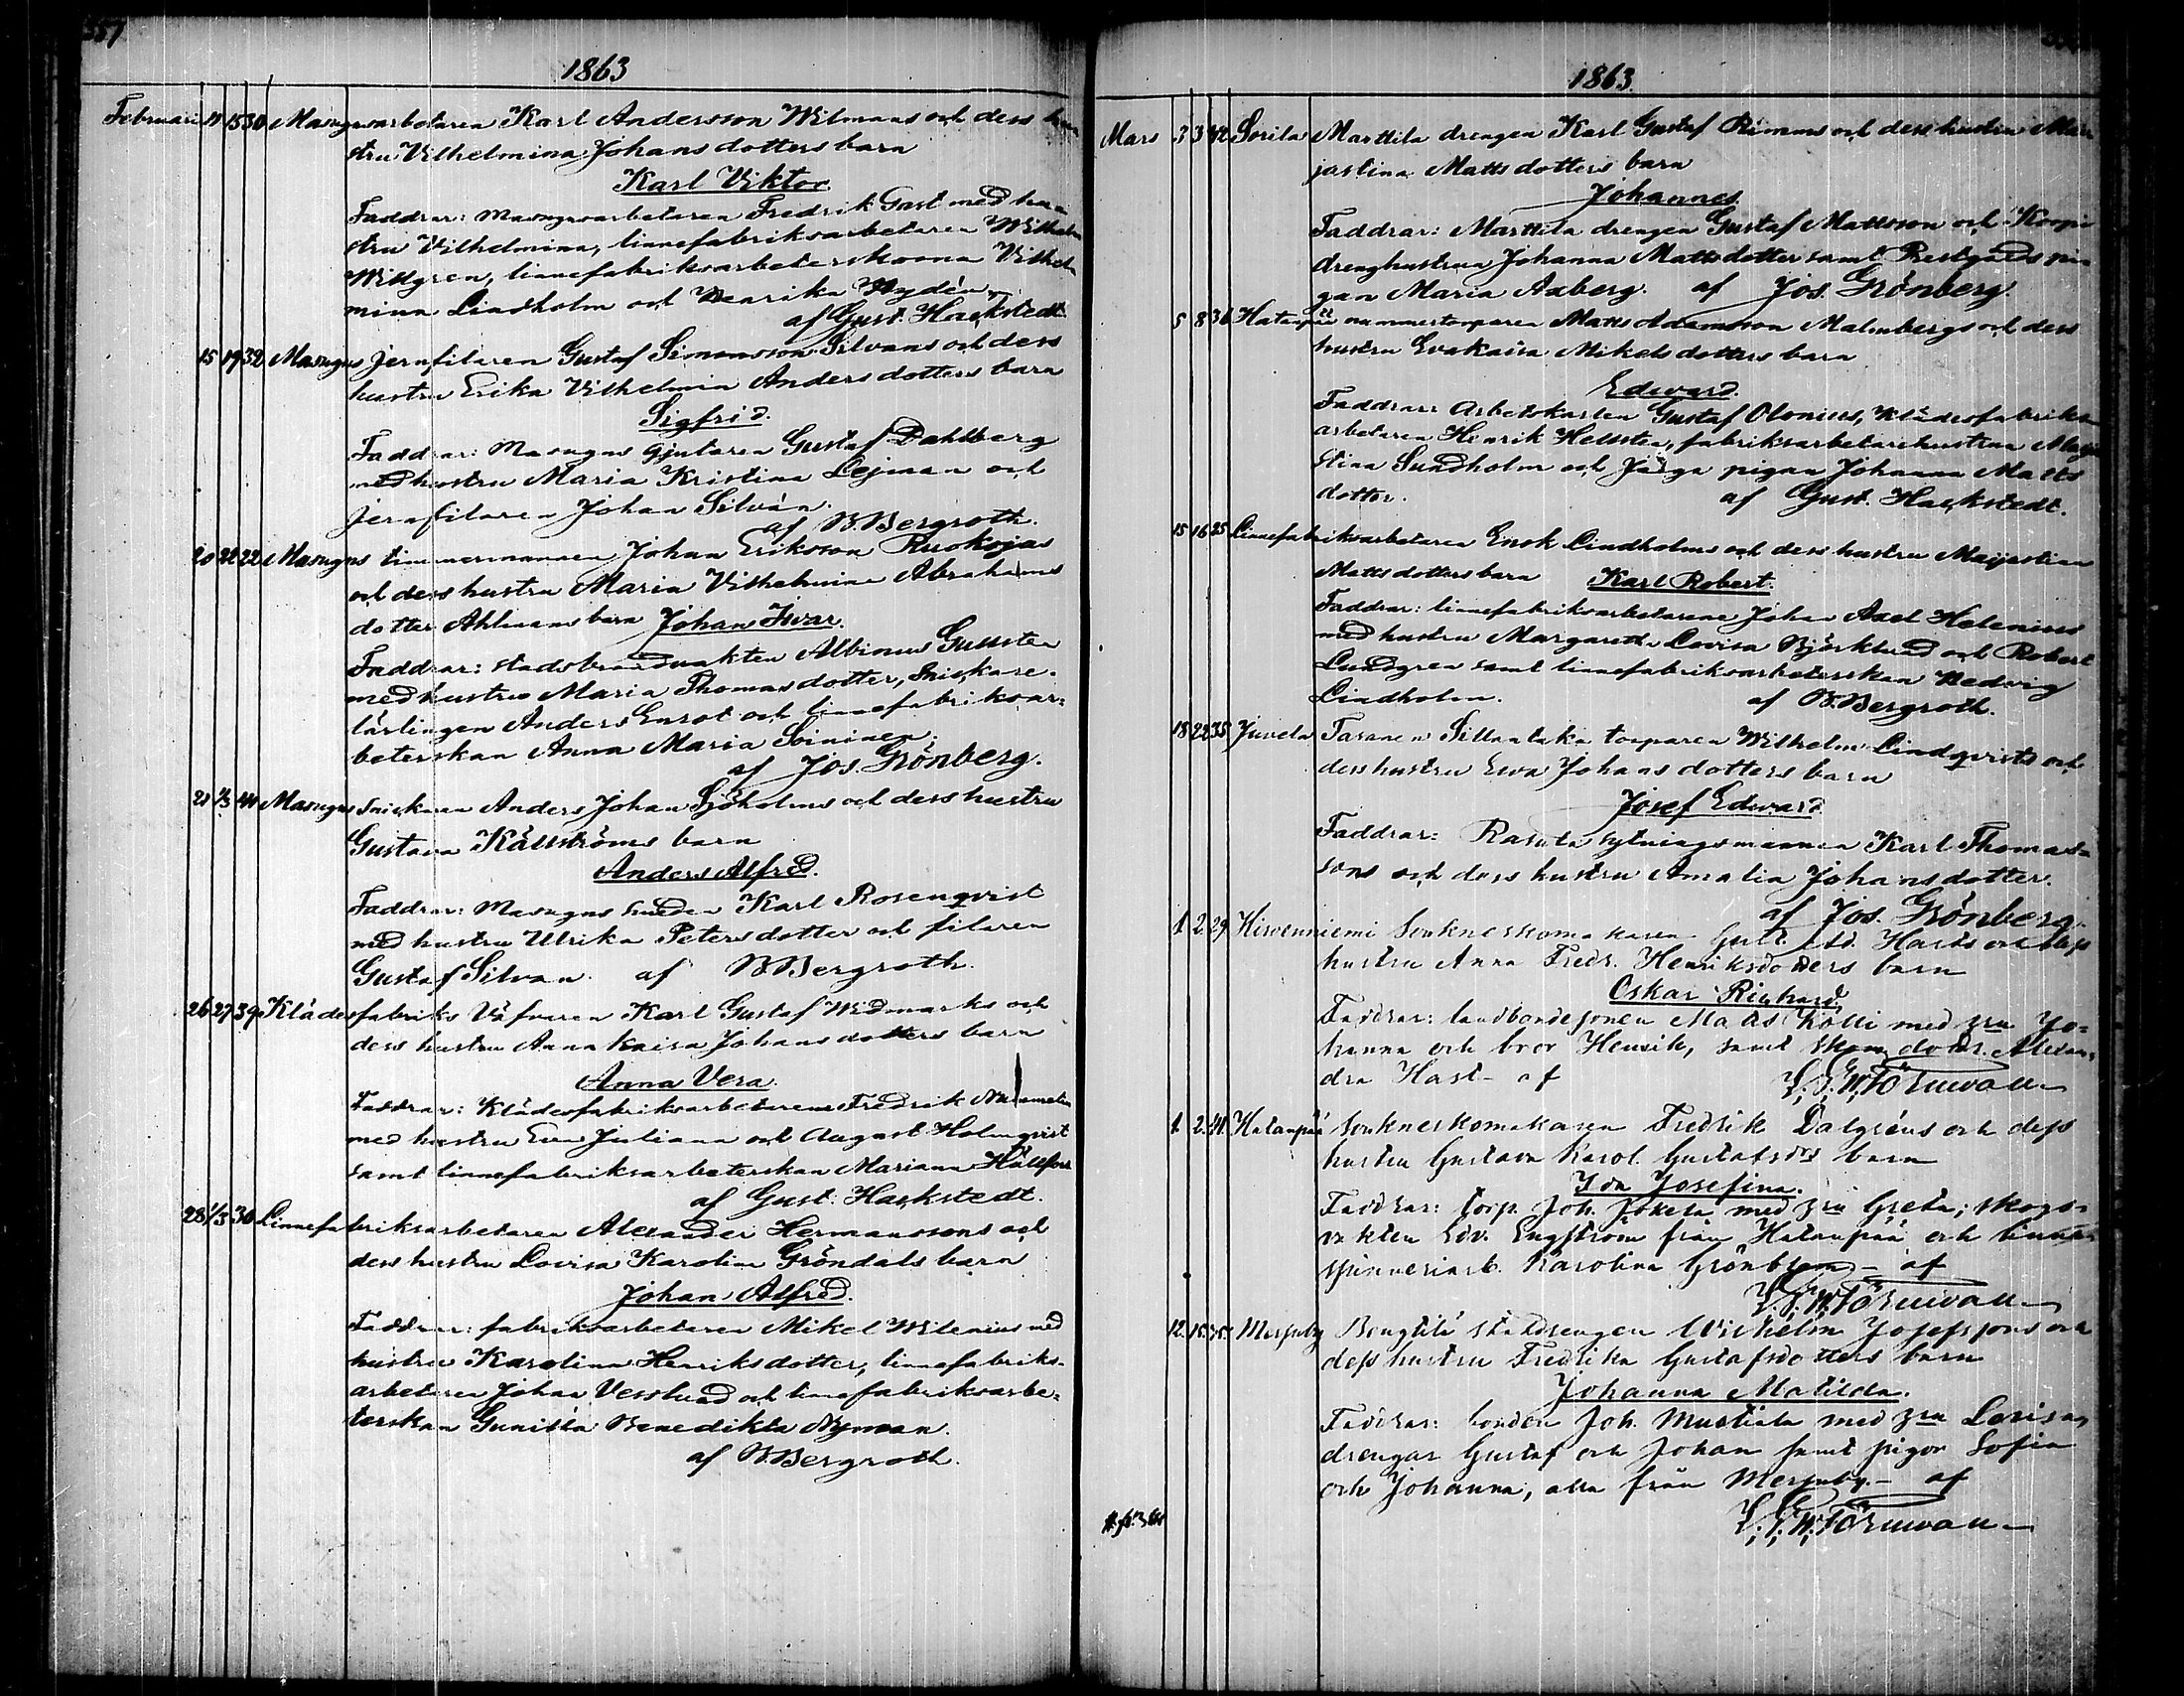 557
1863
Februari 11 15 30 Masugnsarbetaren Karl Andersson Wilmans och dess hu
stru Vilhelmina Johansdotters barn
Karl Viktor.
Faddrar: Masugnsarbetaren Fredrik Gast med hu
stru Vilhelmina, linnefabriksarbetaren Wilhelm
Willgren, linnefabriksarbeterskorna Vilhel
mina Lindholm och Henrika Nydén,
af Gust. Hackstedt
15 19 32 Masugns jernfilaren Gustaf Simonsson Silvans och dess
hustru Erika Vilhelmina Andersdotters barn
Sigfrid.
Faddrar: Masugns gjutaren Gustaf Dahlberg
med hustru Maria Kristina Lejman och
jernfilaren Johan Silván.
af B. Bergroth.
20 22 22 Masugns timmermannen Johan Eriksson Ruoksjas
och dess hustru Maria Vilhelmina Abrahams
dotter Ahlmans barn Johan Ivar.
Faddrar: stadsbrandvakten Albinus Gullsten
med hustru Maria Thomasdotter, Snickare-
lärlingen Anders Enrot och linnefabriksar-
beterskan Anna Maria Soininen.
af Jos. Grönberg.
21 1/3 44 Masugns Snickaren Anders Johan Sjöholms och dess hustru
Gustava Källströms barn
Anders Alfred.
Faddrar: Masugns smeden Karl Rosenqvist
med hustru Ulrika Petersdotter och filaren
Gustaf Silvan. af B. Bergroth.
26 27 39 Klädesfabriks Väfvaren Karl Gustaf Widmarks och
dess hustru Annakaisa Johansdotters barn
Anna Vera.
Faddrar: Klädesfabriksarbetarene Fredrik Nummelin
med hustru Eva Juliana och August Holmqvist
samt linnefabriksarbeterskan Mariana Hällfors
af Gust. Hackstedt.
28 1/3 30 Linnefabriksarbetaren Alexander Hermanssons och
dess hustru Lovisa Karolina Gröndals barn
Johan Alfred.
Faddrar: fabriksarbetaren Mikel Wilenius med
hustru Karolina Henriksdotter, linnefabriks-
arbetaren Johan Vesslund och linnefabriksarbe-
terskan Gunilla Benedikta Nyman.
af B. Bergroth.
1863.
Mars 2 3 42 Sorila Marttila drengen Karl Gustaf Rimms och dess hustru Mar
jastina Mattsdotters barn
Johannes
Faddrar: Marttila drengen Gustaf Mattsson och Koopi
drenghustrun Johanna Mattsdotter samt Prestgårds pi
gan Maria Axberg. af Jos. Grönberg.
5 8 36 Hatanpää nummertorparen Matts Adamsson Malmbergs och dess
hustru Evakaisa Mikelsdotters barn
Edward.
Faddrar: Arbetskarlen Gustaf Olonius, Klädesfabriks
arbetaren Henrik Hellsten, fabriksarbetarehustrun Maja
stina Sundholm och pigan Johanna Matts
dotter. af Gust. Hackstedt.
15 16 25 Linnefabriksarbetaren Enok Lindholms och dess hustru Majjastina
Mattsdotters barn Karl Robert.
Faddrar: linnefabriksarbetarene Johan Axel Helenius
med hustru Margareta Lovisa Björklund och Robert
Lundgren samt linnefabriksarbeterskan Hedvig
Lindholm. af B. Bergroth.
18 22 35 Juvela Tasanen Sillanlaka torparen Wilhelm Lindqvists och
dess hustru Eva Johansdotters barn
Josef Edward.
Faddrar: Rasula sytningsmannen Karl Thomas-
sons och dess hustru Amalia Johansdotter.
af Jos. Grönberg.
1. 2. 29 Hirvenniemi Sockneskomakaren Gust. Ad. Hasts och dess
hustru Anna Fredr. Henriksdotters barn
Oskar Richard.
Faddrar: landbondesonen Matts Kolli med hru Jo-
hanna och bror Henrik, samt skom. dottr. Alexan-
dra Hast – af
L. G. W. Törnwall
1. 2. 41. Hatanpää Sockneskomakaren Fredrik Dalgréns och dess
hustru Gustava Karol. Gustafsdrs barn
Ida Josefina.
Faddrar: torp. Joh. Jokela med hru Greta; skogs-
vakten Edv. Engström från Hatanpää och linne-
spinneriarb. Karolina Grönblom – af
L. G. W. Törnwall
12. 15. 35. Messuby Bengtilä statdrengen Wilhelm Josefssons och
dess hustru Fredrika Gustafsdotters barn
Johanna Matilda.
Faddrar: bonden Joh. Mustiala med hru Lovisa,
drengar Gustaf och Johan samt pigor Sofia
och Johanna, alla från Messuby. – af
L. G. W. Törnwall